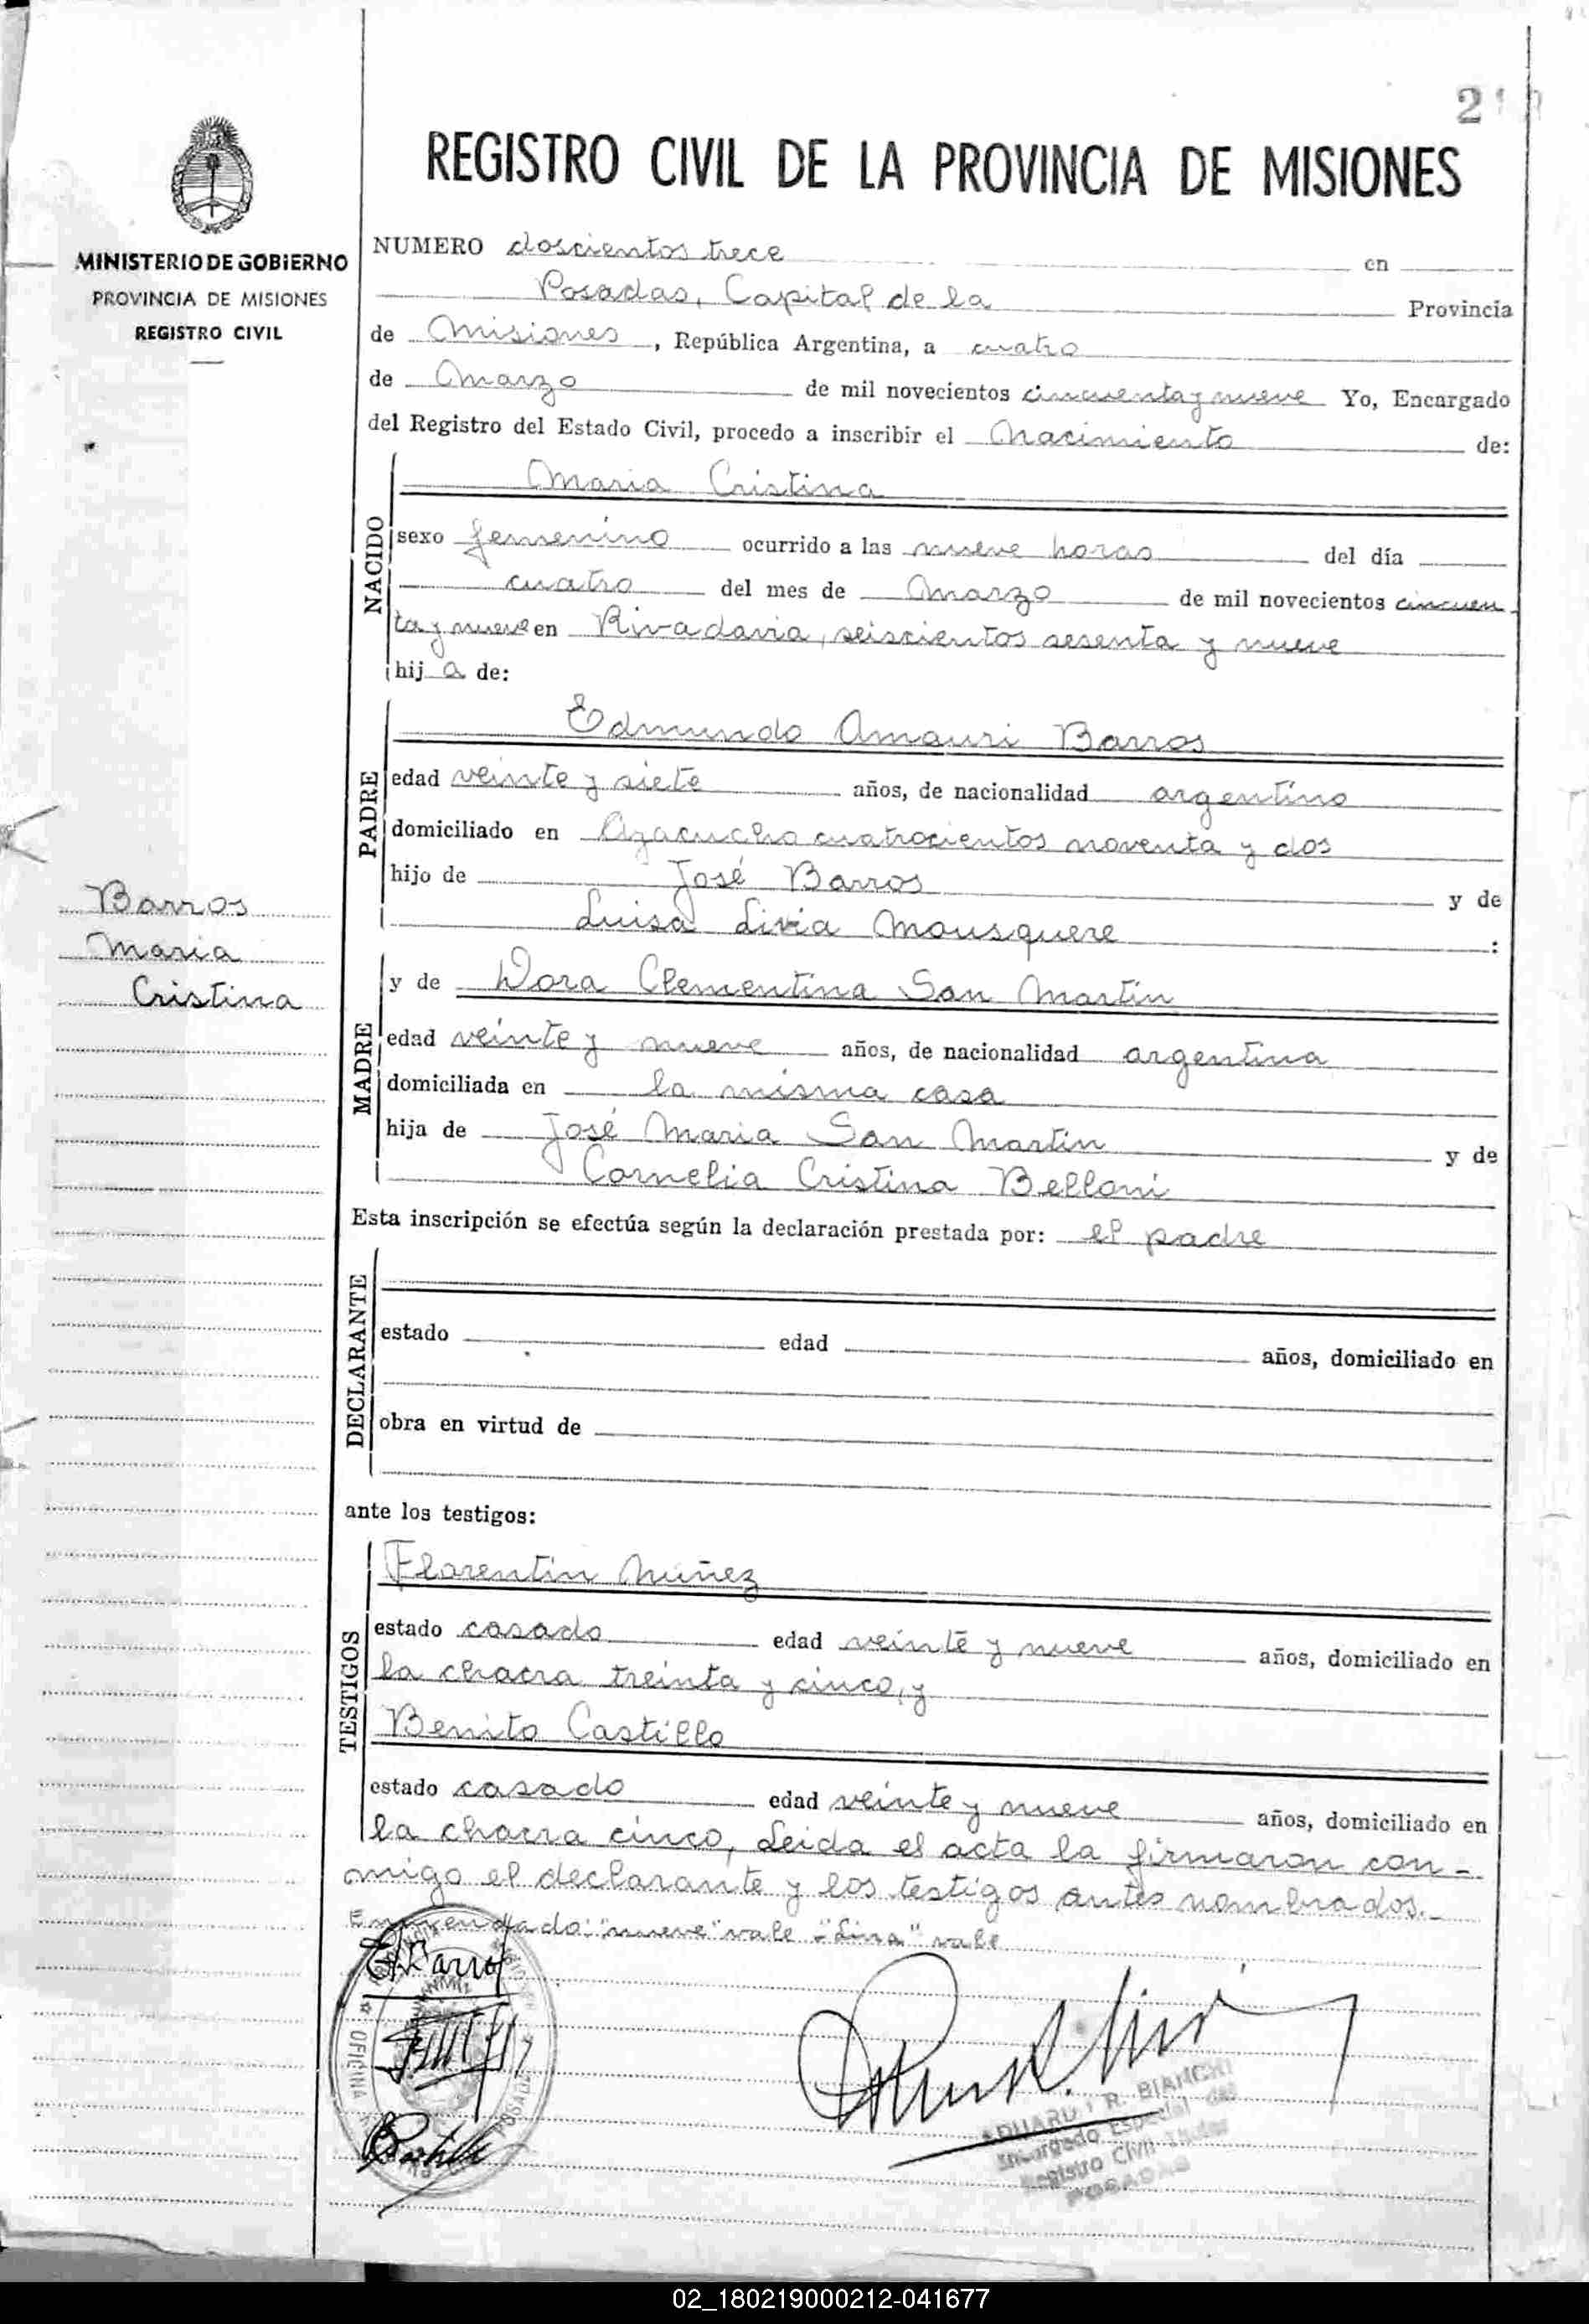 REGISTRO CIVIL DE LA PROVINCIA DE MISIONES
MINISTERIO DE GOBIERNO
PROVINCIA DE MISIONES
REGISTRO CIVIL
NUMERO doscientos trece en
Posadas, Capital de la Provincia
de Misiones, República Argentina, a cuatro
de Marzo de mil novecientos cincuenta y nueve Yo, Encargado
del Registro del Estado Civil, procedo a inscribir el Nacimiento de:
NACIDO
Maria Cristina
sexo femenino ocurrido a las nueve horas del día
cuatro del mes de Marzo de mil novecientos cincuen
ta y nueve en Rivadavia, seiscientos sesenta y nueve
hij a de:
PADRE
Edmundo Amauri Barros
edad veinte y siete años, de nacionalidad argentino
domiciliado en Ayacucho cuatrocientos noventa y dos
hijo de José Barros y de
Luisa Livia Mousquere :
Barros
Maria
Cristina
MADRE
y de Dora Clementina San Martin
edad veinte y nueve años, de nacionalidad argentina
domiciliada en la misma casa
hija de José Maria San Martin y de
Cornelia Cristina Belloni
Esta inscripción se efectúa según la declaración prestada por: el padre
DECLARANTE
estado edad años, domiciliado en
obra en virtud de
ante los testigos:
TESTIGOS
Florentin Núñez
estado casado edad veinte y nueve años, domiciliado en
la chacra treinta y cinco, y
Benito Castillo
estado casado edad veinte y nueve años, domiciliado en
la chacra cinco, Leida el acta la firmaron con-
migo el declarante y los testigos antes nombrados.-
Enmendado: "nueve" vale - vale
E. Barros
OFICINA
R. BIANCHI
Encargado Especial del
Registro Civil Titular
POSADAS
02_180219000212-041677